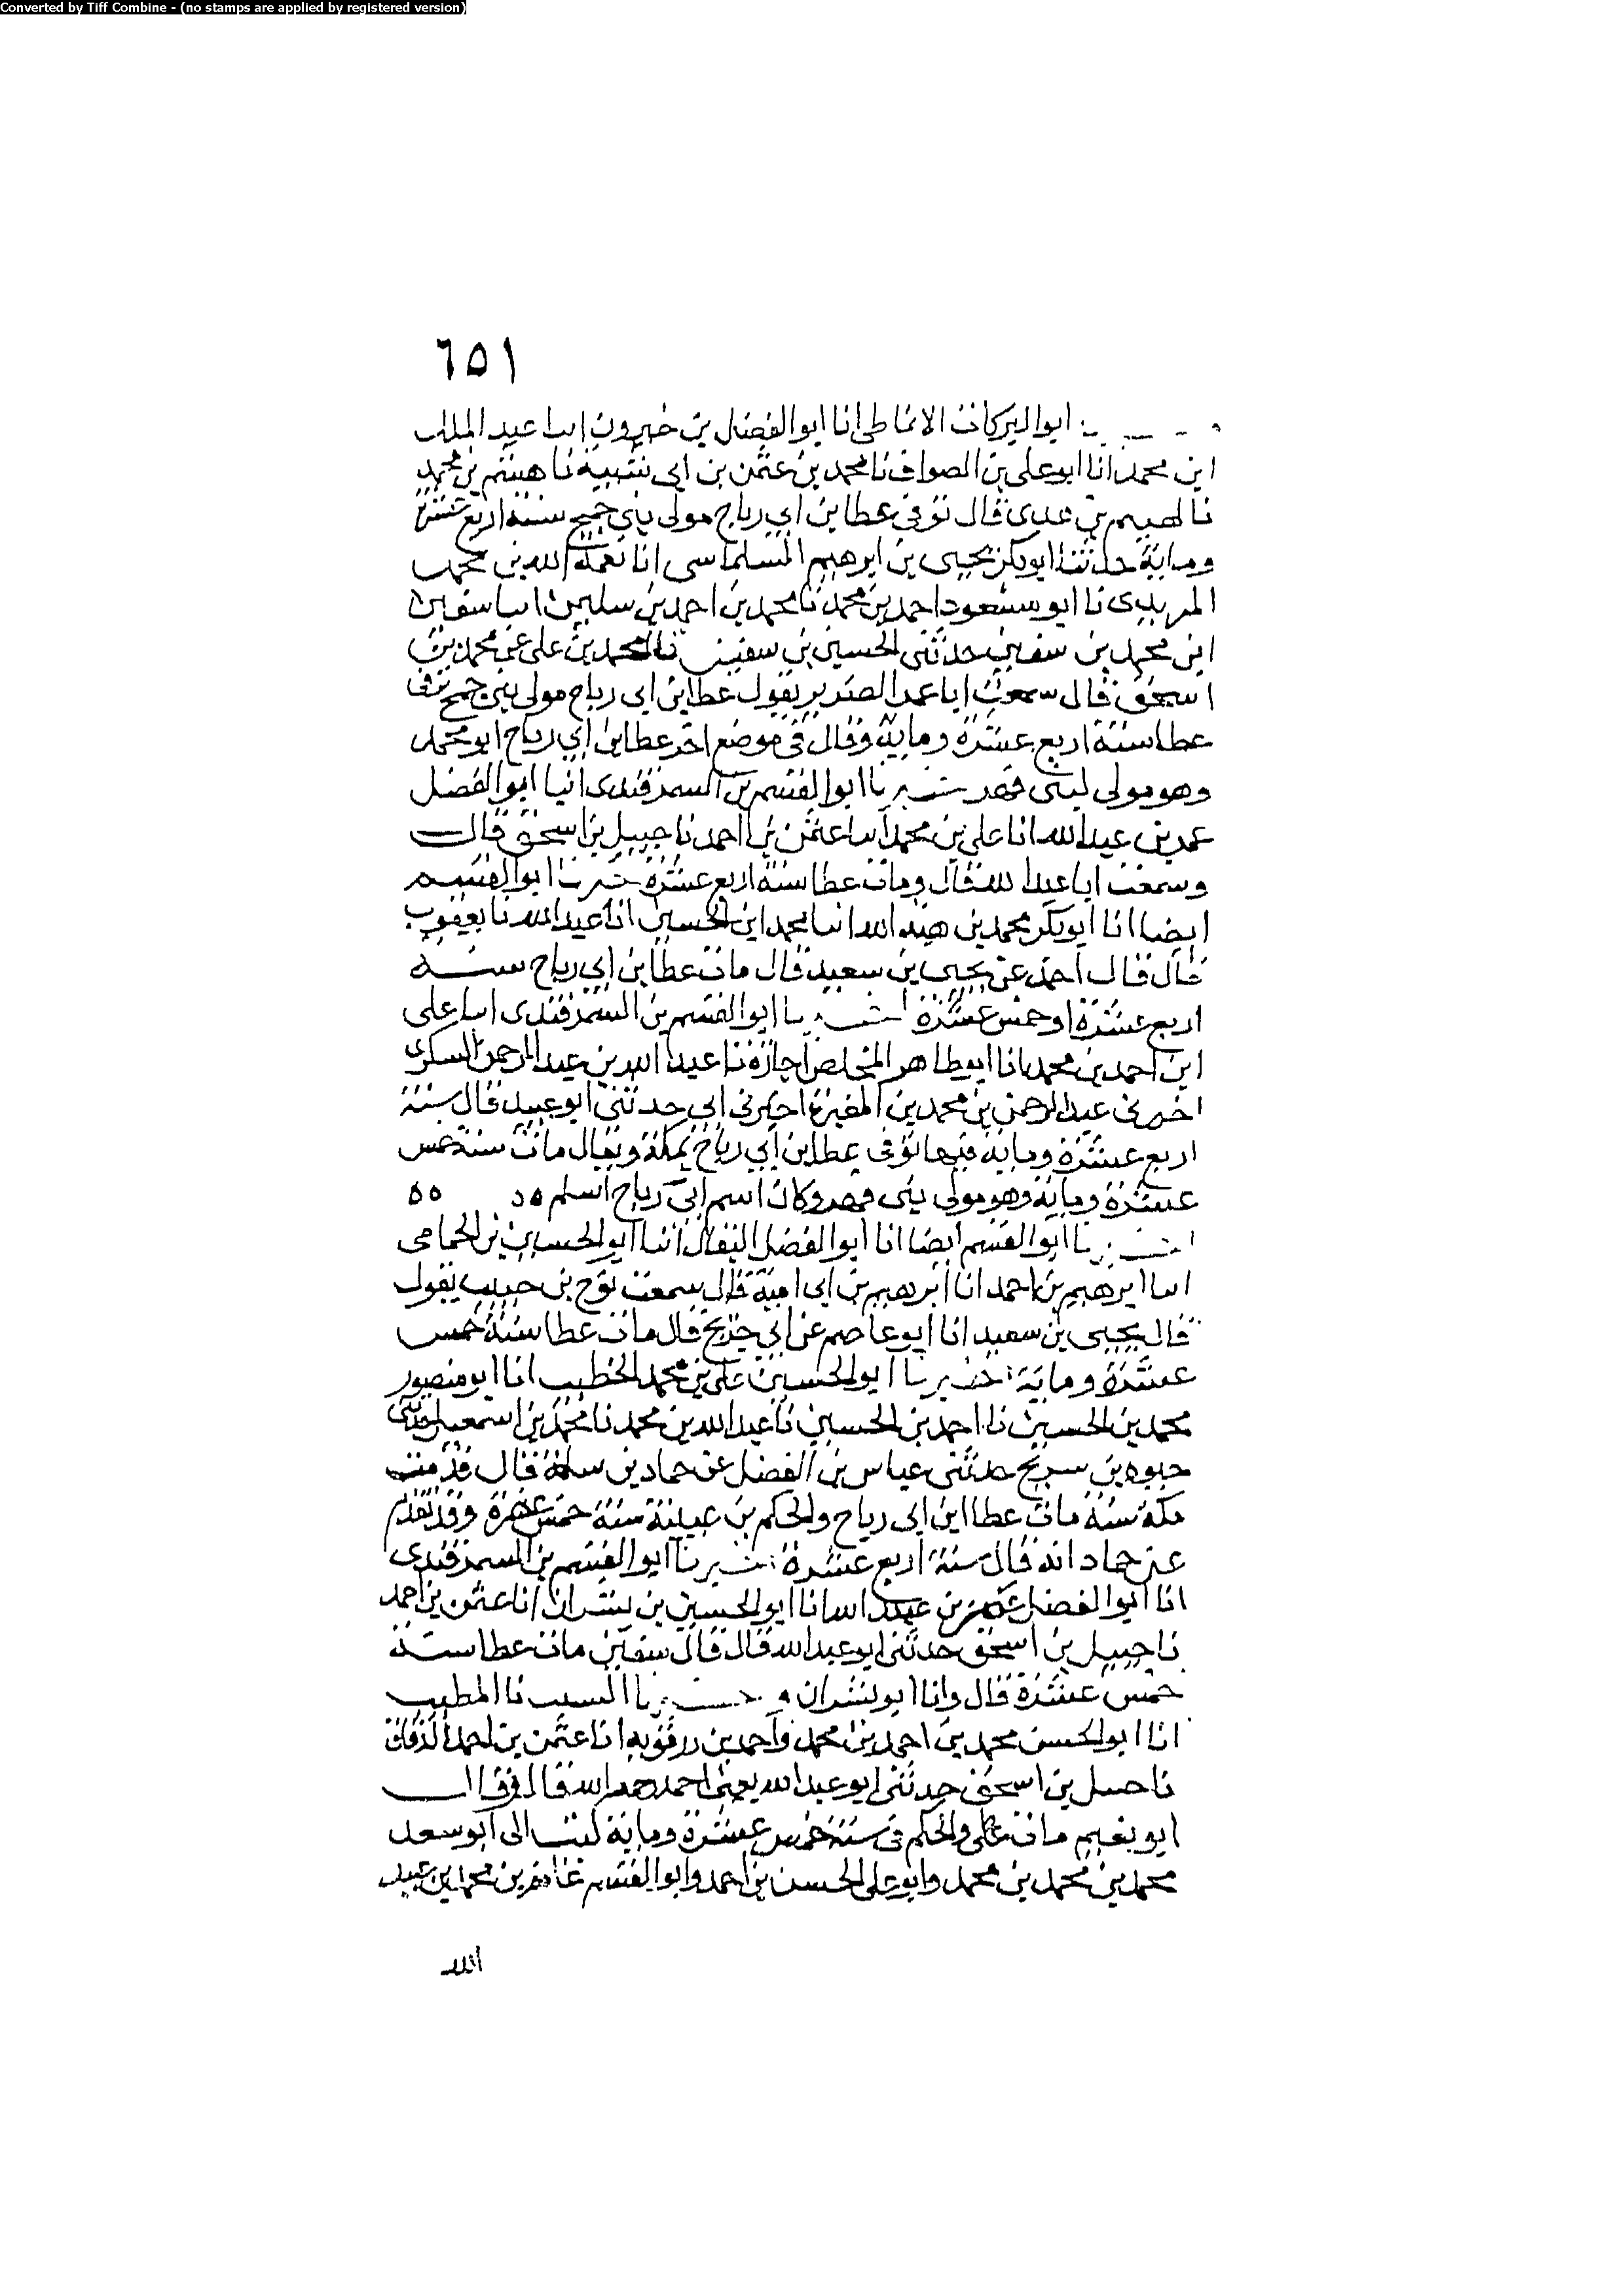 Converted by Tiff Combine - (no stamps are applied by registered version)
٦٥١
ابو البركات الانماطي انا ابو الفضل بن خيرون انبا عبد الملك
ابن محمد انا ابو علي بن الصواف نا محمد بن عثمن بن ابي شيبة نا هشم بن محمد
نا الهيثم بن عدى قال توفى عطا بن ابي رباح مولى بني جمح سنة اربع عشرة
وماية حدثنا ابو بكر يحيى بن ابرهيم السلماسى انا نعمة الله بن محمد
المرىدى نا ابو مسعود احمد بن محمد نا محمد بن احمد بن سليمن انبا سفين
ابن محمد بن سفين حدثني الحسين بن سفين نا محمد بن على عن محمد بن
اسحق قال سمعت ابا عمر الضرير يقول عطا بن ابي رباح مولى بنى جمح توفى
عطا سنة اربع عشرة وماية وقال في موضع اخر عطا بن ابي رباح ابو محمد
وهو مولى لبنى فهر خبرنا ابو القسم بن السمرقندى انبا ابو الفضل
عمر بن عبيد الله انا على بن محمد انبا عثمن بن احمد نا حنبل بن اسحق قال
وسمعت ابا عبد الله قال ومات عطا سنة اربع عشرة خبرنا ابو القسم
ايضا انا ابو بكر محمد بن هبة الله انبا محمد ابن الحسين انا عبد الله نا يعقوب
قال قال احمد عن يحيى بن سعيد قال مات عطا بن ابي رباح سنة
اربع عشرة او خمس عشرة اخبرنا ابو القسم بن السمرقندى انبا على
ابن احمد بن محمد انا ابو طاهر المخلص اجازة نا عبيد الله بن عبد الرحمن السكرى
اخبرنى عبد الرحمن بن محمد بن المغيرة اخبرني ابي حدثني ابو عبيد قال سنة
اربع عشرة وماية فيها توفى عطا بن ابي رباح بمكة ويقال مات سنة خمس
عشرة وماية وهو مولى بنى فهر وكان اسم ابي رباح اسلم ٥٥ ٥٥
اخبرنا ابو القسم ايضا انا ابو الفضل البقال انبا ابو الحسين بن الحمامى
انبا ابرهيم بن احمد انا ابرهيم بن ابي امية قال سمعت نوح بن حبيب يقول
قال يحيى بن سعيد انا ابو عاصم عن ابي جريج قال مات عطا سنة خمس
عشرة وماية خبرنا ابو الحسين على بن محمد الخطيب انا ابو منصور
محمد بن الحسين نا احمد بن الحسين نا عبد الله بن محمد نا محمد بن اسمعيل حدثنى
حيوه بن سريج حدثنى عباس بن الفضل عن حماد بن سلمة قال قدمت
مكة سنة مات عطا ابن ابى رباح والحكم بن عيينة سنة خمس عشرة وقد تقدم
عن حماد انه قال سنة اربع عشرة خبرنا ابو القسم بن السمرقندى
انا ابو الفضل عمر بن عبيد الله انا ابو الحسين بن بشران انا عثمن بن احمد
نا حنبل بن اسحق حدثنى ابو عبد الله قال قال سفين مات عطا سنة
خمس عشرة قال وانا ابو بشران و خبرنا النسيب نا الخطيب
انا ابو الحسن محمد بن احمد بن محمد واحمد بن رزقويه انا عثمن بن احمد الدقاق
نا حنبل بن اسحق حدثنى ابو عبد الله يعنى احمد رحمه الله قال قال
ابو نعيم مات عطا والحكم في سنة خمس عشرة وماية كتب الى ابو سعد
محمد بن محمد بن محمد وابو على الحسن بن احمد وابو القسم غانم بن محمد بن عبيد
الله